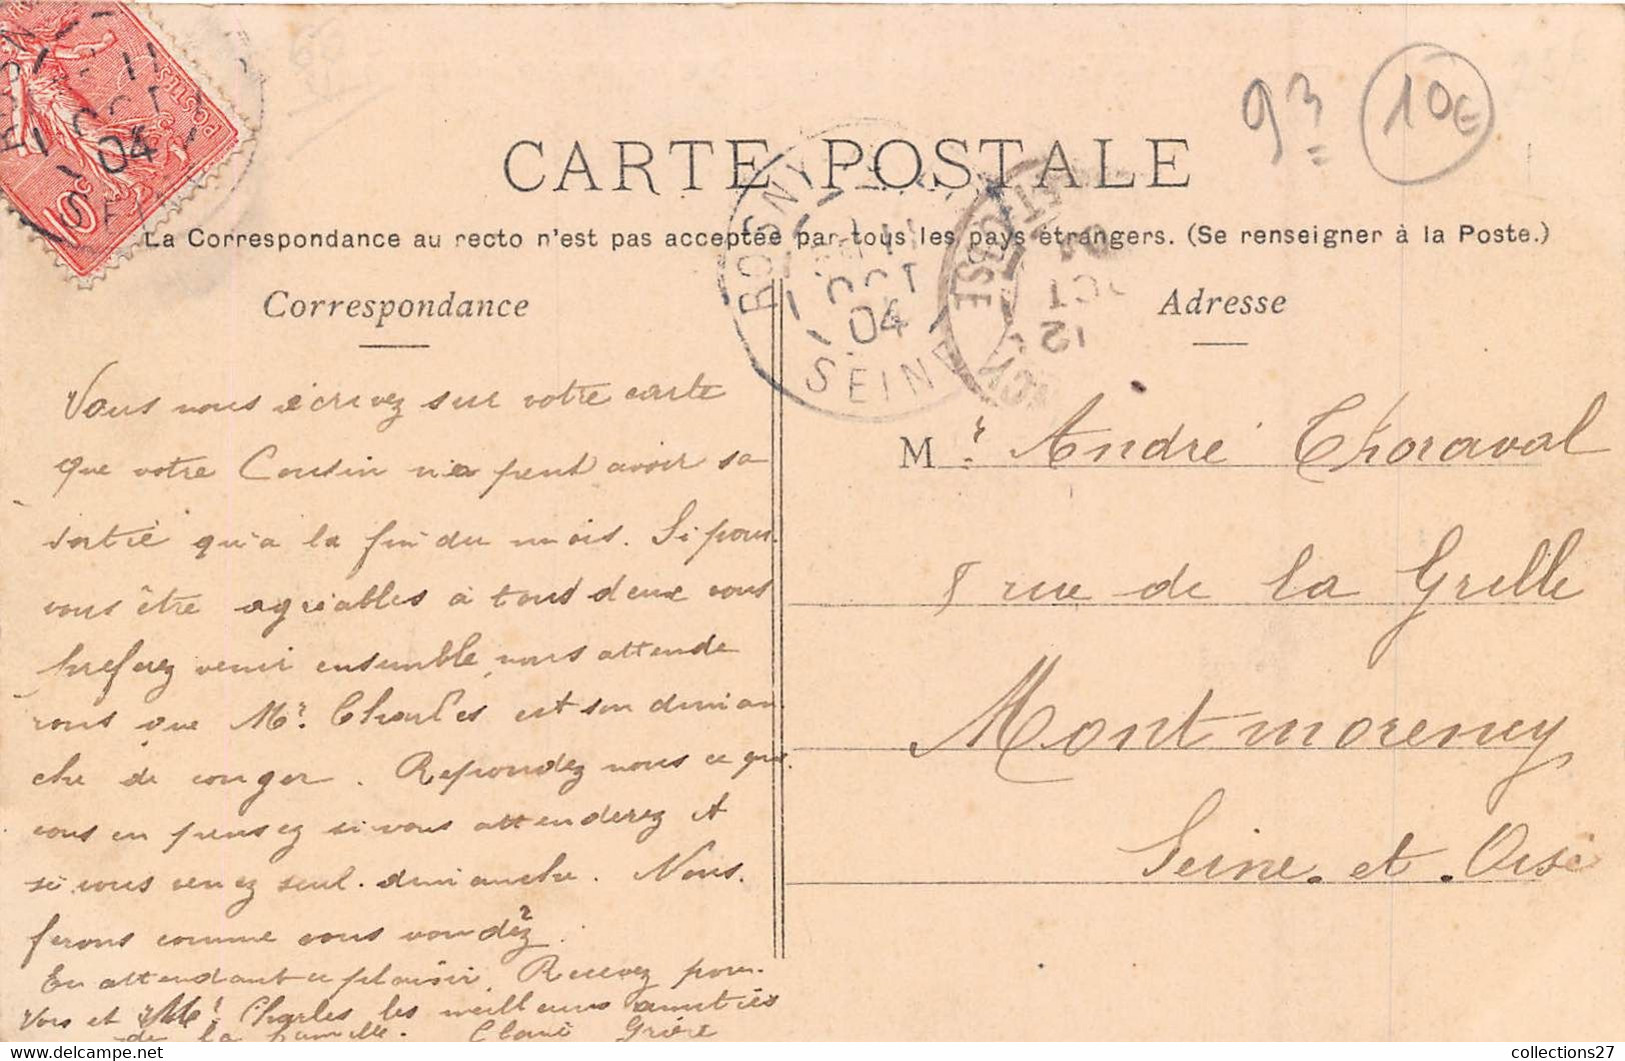 93 10€
CARTE POSTALE
La Correspondance au recto n'est pas acceptée par tous les pays étrangers. (Se renseigner à la Poste.)
ROSNY
11
OCT
04
SEINE
12
OCT
POSTES
10c
Correspondance
Vous nous écrivez sur votre carte
que votre Cousin ne peut avoir sa
sortie qu'a la fin du mois. Si pour
vous être agréables a tous deux vous
preferez venir ensemble, nous attende
rons que Mr. Charles est son diman
che de conger. Repondez nous ce que
vous en pensez si vous attenderez et
si vous venez seul. dimanche. Nous.
ferons comme vous voudez.
En attendant ce plaisir. Recevez pour
Vous et Mr Charles les meilleurs amitiés
de la famille.
Adresse
Mr. André Thoraval
8 rue de la Grille
Montmorency
Seine. et. Oise
collections27